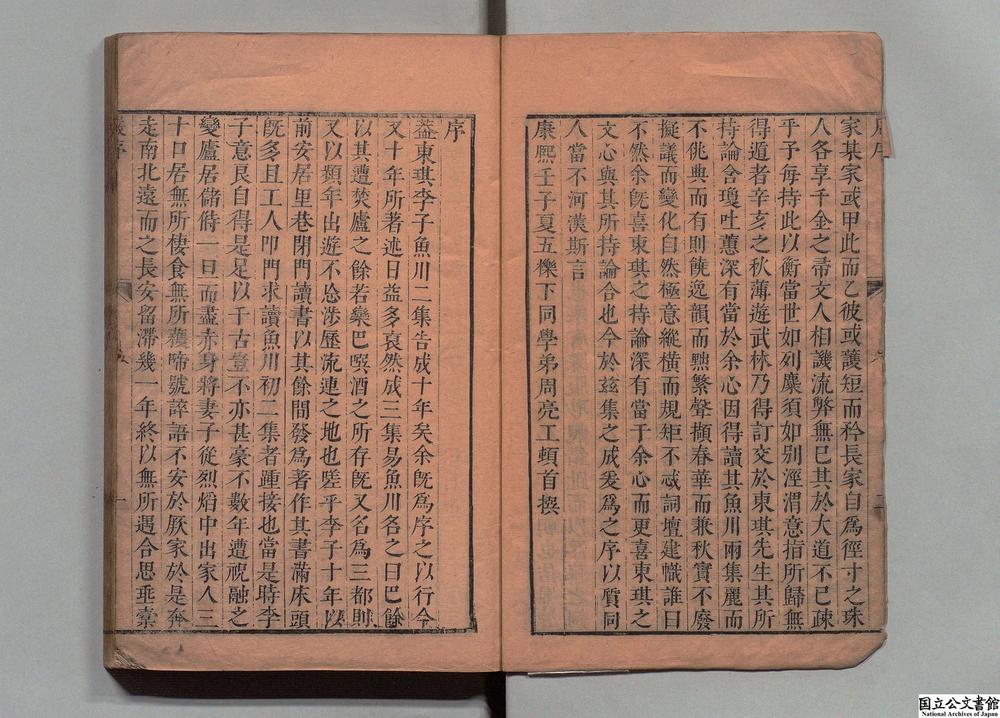 家某家或甲此而乙彼或護短而矜長家自為徑寸之珠
人各享千金之帚文人相譏流弊無已其於大道不已疎
乎予每持此以衡當世如列麋須如別涇渭意指所歸無
得遁者辛亥之秋薄遊武林乃得訂交於東琪先生其所
持論含瓊吐蕙深有當於余心因得讀其魚川兩集麗而
不佻典而有則饒逸韻而黜繁聲擷春華而兼秋實不廢
擬議而變化自然極意縱橫而規矩不忒詞壇建幟誰曰
不然余既喜東琪之持論深有當于余心而更喜東琪之
文心與其所持論合也今於茲集之成爰為之序以質同
人當不河漢斯言
康熙壬子夏五櫟下同學弟周亮工頓首撰
序
葢東琪李子魚川二集告成十年矣余旣為序之以行今
又十年所著述日益多裒然成三集易魚川名之曰巴餘
以其遭焚廬之餘若欒巴噀酒之所存旣又名為三都則
又以頻年出遊不忘涉歷流連之地也嗟乎李子十年以
前安居里巷閉門讀書以其餘間發為著作其書滿床頭
旣多且工人叩門求讀魚川初二集者踵接也當是時李
子意良自得是足以千古豈不亦甚豪不數年遭祝融之
變廬居儲偫一旦而盡赤身將妻子從烈熖中出家人三
十口居無所棲食無所穫啼號誶語不安於厥家於是奔
走南北遠而之長安留滯幾一年終以無所遇合思垂橐
序
一
国立公文書館
National Archives of Japan